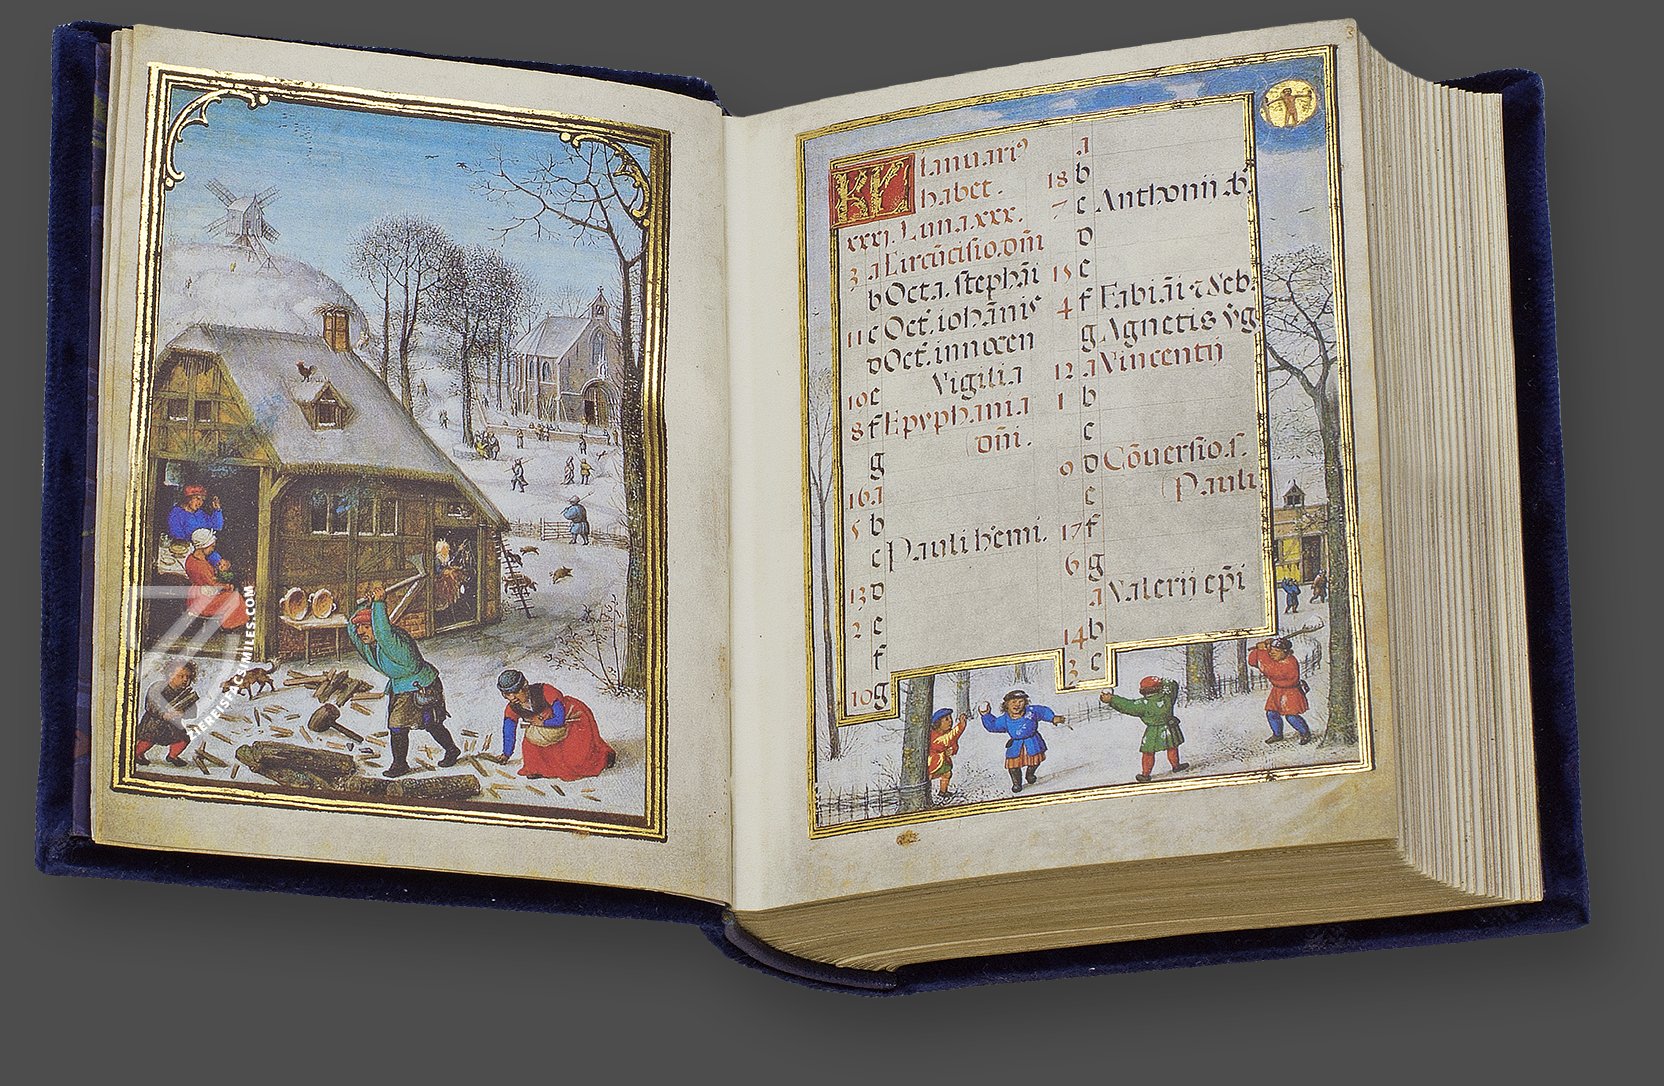 KL Ianuariꝰ
habet.
xxxj. Luna.xxx.
3 a Circūcisio.dn̄i
b Octa. stephāi
11 c Oct̄. iohānis
d Oct̄. innocen
Vigilia
19 e
8 f Epyphania
dn̄i.
g
16 a
5 b
c Pauli hēmi.
13 d
2 e
f
10 g
a
18 b
7 c Anthonij ab.
d
15 e
4 f Fabiāi ⁊ Seb.
g Agnetis vg.
12 a Vincentij
1 b
c
9 d Cōuersio.s.
e Pauli
17 f
6 g
a Valerij epī
14 b
3 c
3
ZIEREISFACSIMILES.COM